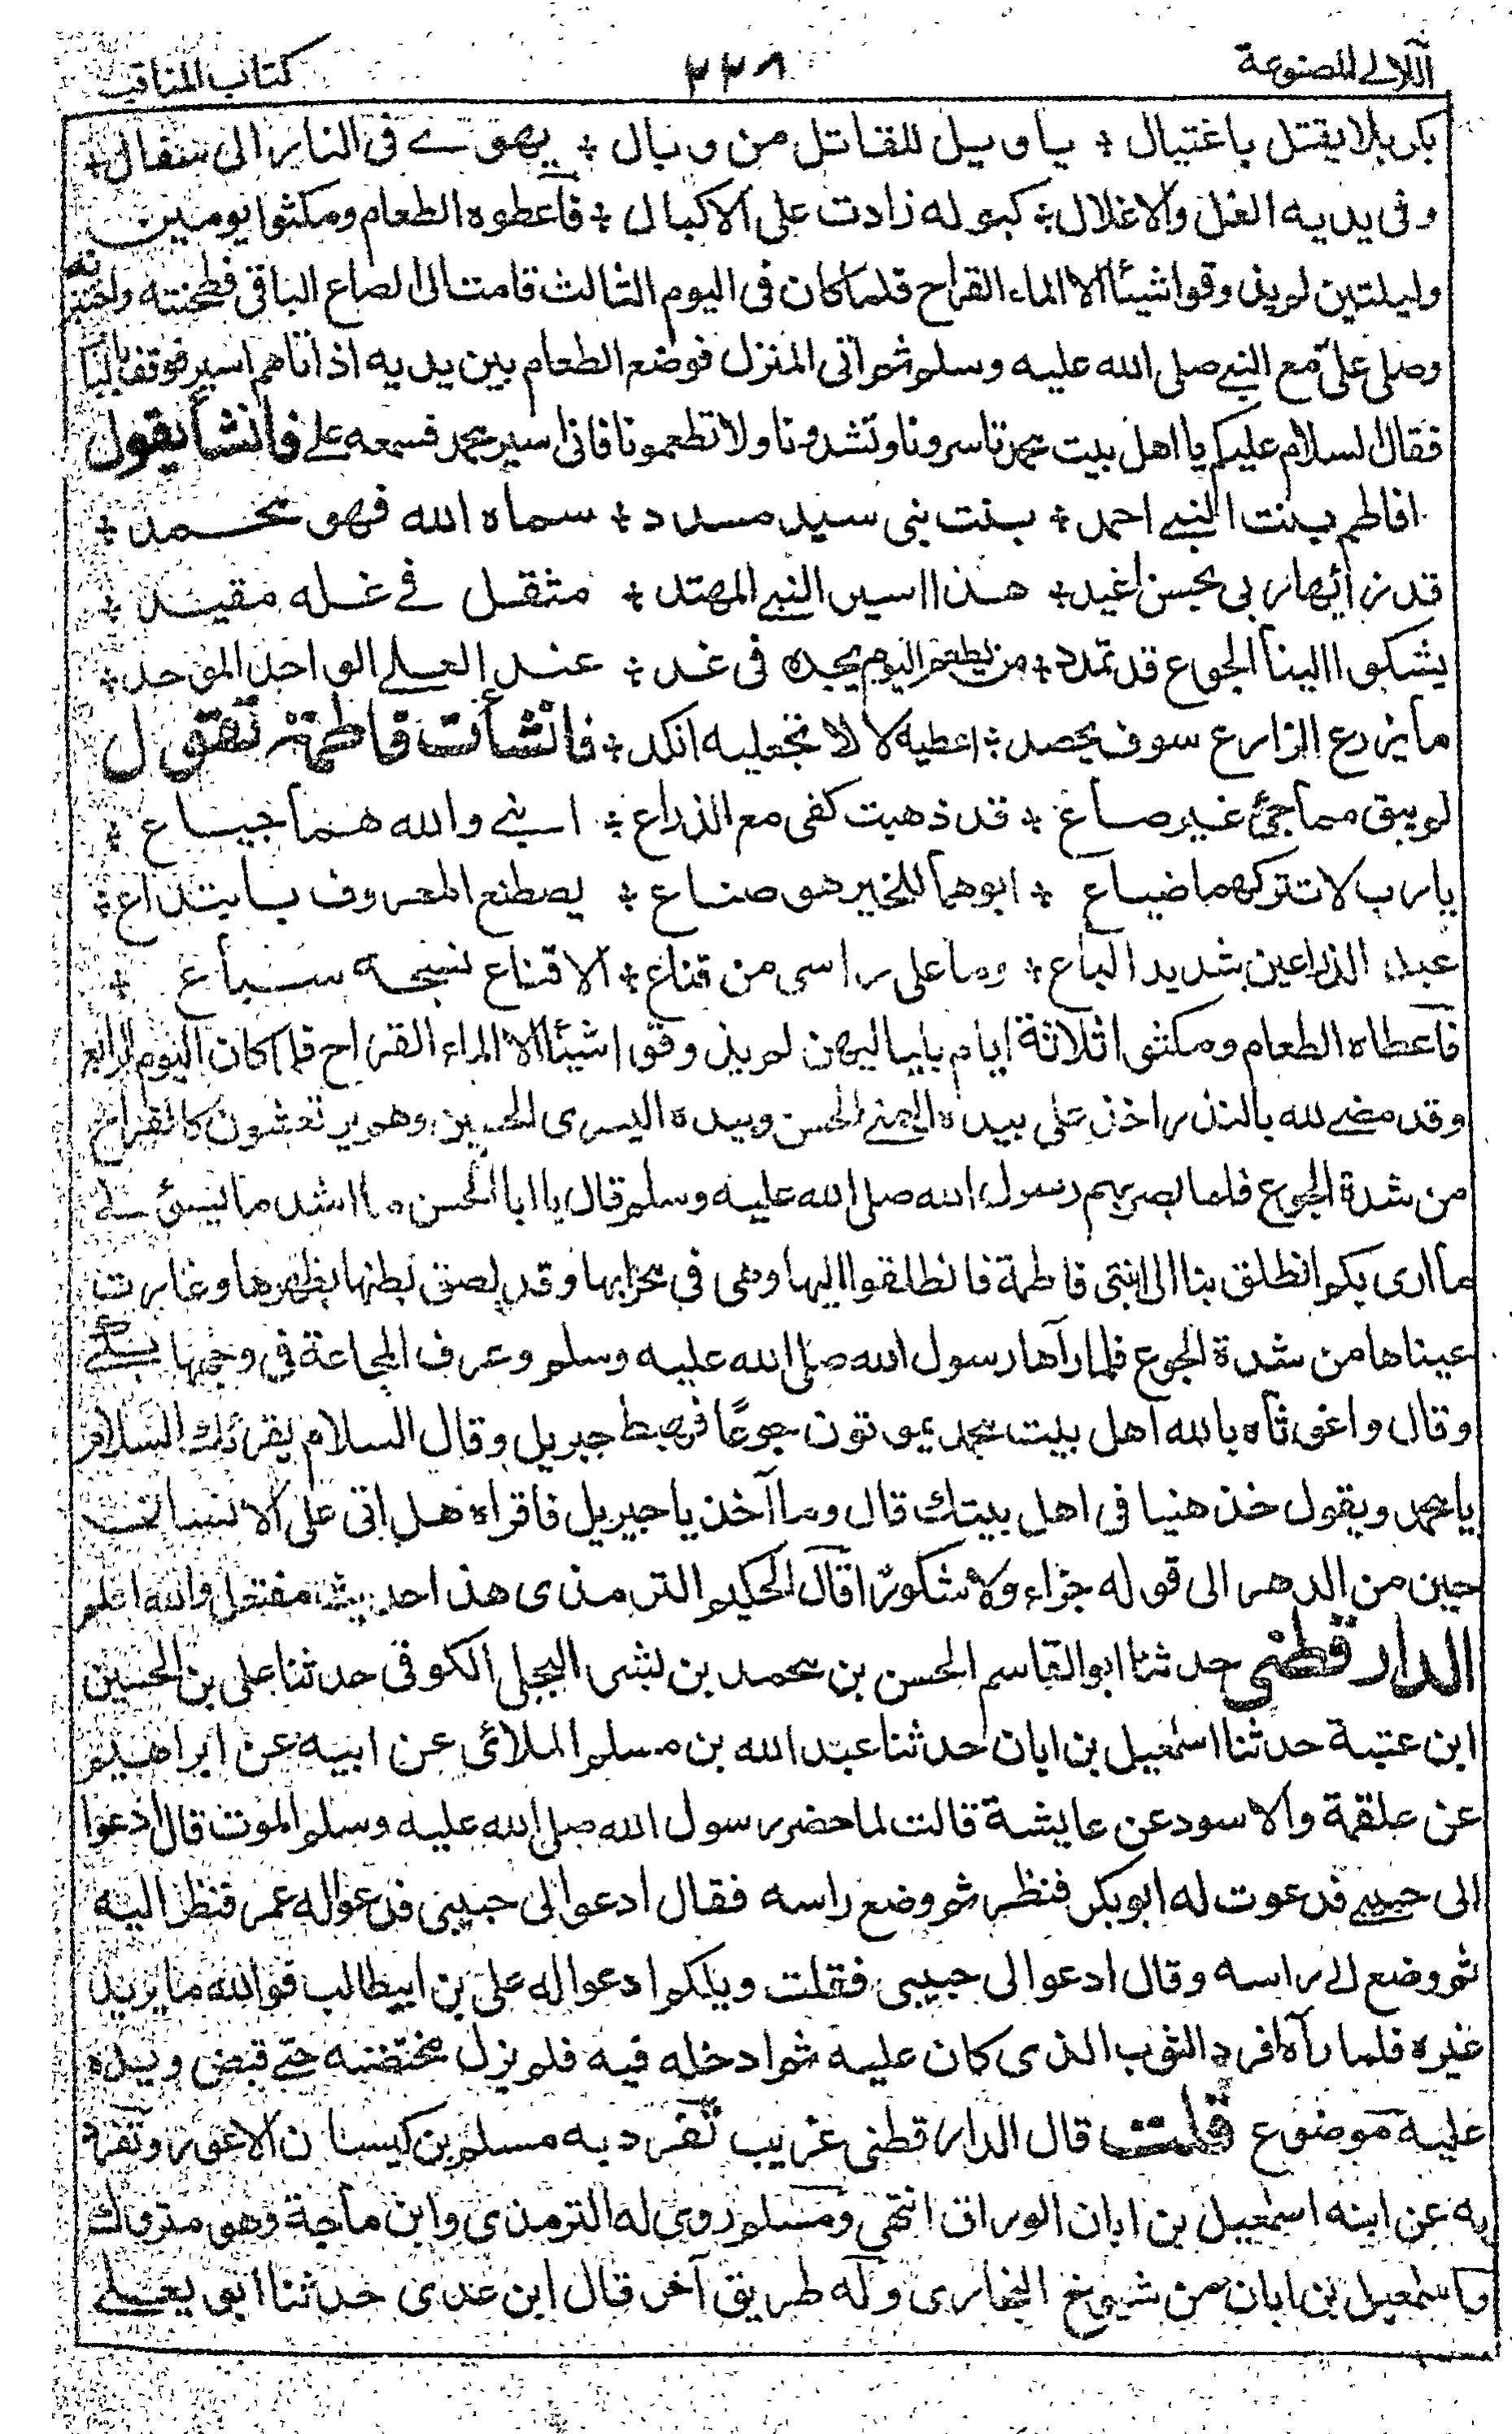 اللآلى المصنوعة ٢٢٨ كتاب المناقب
بكربلا يقتل باغتيال ٭ يا ويل للقاتل من وبال ٭ يهوے فى النار الى سفال ٭
وفى يديه الغل والاغلال ٭ كبوله زادت على الاكبال ٭ فأعطوه الطعام ومكثوا يومين
وليلتين لم يذوقوا شيئا الا الماء القراح فلما كان فى اليوم الثالث قامت الى الصاع الباقى فطحنته واختبزته
وصلى علىّ مع النبے صلى الله عليه وسلم ثم اتى المنزل فوضع الطعام بين يديه اذ اتاهم اسير فوقف بالباب
فقال السلام عليكم يا اهل بيت محمد تأسروننا وتشدوننا ولا تطعموننا فانى اسير محمد فسمعه على فأنشأ يقول
افاطم بنت النبے احمد ٭ بنت نبى سيد مسدد ٭ سماه الله فهو محمد ٭
قد زانها ربى بحسن اغيد ٭ هذا اسير النبے المهتد ٭ مثقل فے غله مقيد ٭
يشكوا الينا الجوع قد تمدد ٭ من يطعم اليوم يجده فى غد ٭ عند العلے الواحد الموحد ٭
ما يزرع الزارع سوف يحصد ٭ اعطيه لا لا تجعليه انكد ٭ فأنشأت فاطمة تقول
لم يبق مما جئ غير صاع ٭ قد ذهبت كفى مع الذراع ٭ ابنے والله هما جياع ٭
يا رب لا تتركهما ضياع ٭ ابوهما للخير هو صناع ٭ يصطنع المعروف بابتداع ٭
عبل الذراعين شديد الباع ٭ وما على راسى من قناع ٭ الا قناع نسجه سباع ٭
فأعطاه الطعام ومكثوا ثلاثة ايام بلياليهن لم يذوقوا شيئا الا الماء القراح فلما كان اليوم الرابع
وقد مضے لله بالنذر اخذ على بيده اليمنے الحسن وبيده اليسرى الحسين وهم يرتعشون كالفراخ
من شدة الجوع فلما بصر بهم رسول الله صلى الله عليه وسلم قال يا ابا الحسن ما اشد ما يسئ لے
ما ارى بكم انطلق بنا الى ابنتى فاطمة فانطلقوا اليها وهى فى محرابها وقد لصق بطنها بظهرها وغارت
عيناها من شدة الجوع فلما رآها رسول الله صلى الله عليه وسلم وعرف المجاعة فى وجهها بكے
وقال واغوثاه بالله اهل بيت محمد يموتون جوعًا فهبط جبريل وقال السلام يقرئك السلام
يا محمد ويقول خذ هنيا فى اهل بيتك قال وما آخذ يا جبريل فاقراه هل اتى على الانسان
حين من الدهر الى قوله جزاء ولا شكورًا قال الحكيم الترمذى هذا حديث مفتعل والله اعلم
الدارقطنى حدثنا ابو القاسم الحسن بن محمد بن بشر البجلى الكوفى حدثنا على بن الحسين
ابن عتبة حدثنا اسمٰعيل بن ابان حدثنا عبد الله بن مسلم الملائى عن ابيه عن ابراهيم
عن علقمة والاسود عن عايشة قالت لما حضر رسول الله صلى الله عليه وسلم الموت قال ادعوا
الى حبيبے فدعوت له ابوبكر فنظر ثم وضع راسه فقال ادعوا لى حبيبى فدعوا له عمر فنظر اليه
ثم وضع راسه وقال ادعوا لى حبيبى فقلت ويلكم ادعوا له على بن ابيطالب فوالله ما يريد
غيره فلما رآه افرد الثوب الذى كان عليه ثم ادخله فيه فلم يزل محتضنه حتے قبض ويده
عليه موضوع قلت قال الدارقطنى غريب تفرد به مسلم بن كيسان الاعور وتفرد
به عن ابنه اسمٰعيل بن ابان الوراق انتهى ومسلم روى له الترمذى وابن ماجة وهو متروك
واسمٰعيل بن ابان من شيوخ البخارى وله طريق آخر قال ابن عدى حدثنا ابو يعلے